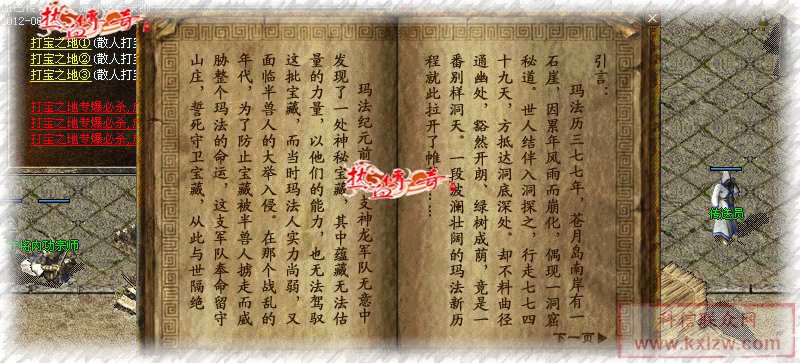 012-0
打宝之地①(散人打宝
打宝之地②(散人打
打宝之地③(散人打
打宝之地专爆必杀.
打宝之地专爆必杀.
打宝之地专爆必杀.
引言:
玛法历三七七年,苍月岛南岸有一
石崖,因累年风雨而崩化,偶现一洞窟
秘道。世人结伴入洞探之,行走七七四
十九天,方抵达洞底深处。却不料曲径
通幽处,豁然开朗、绿树成荫,竟是一
番别样洞天。一段波澜壮阔的玛法新历
程就此拉开了帷……
玛法纪元前 支神龙军队无意中
发现了一处神秘宝藏,其中蕴藏无法估
量的力量,以他们的能力,也无法驾驭
这批宝藏,而当时玛法人实力尚弱,又
面临半兽人的大举入侵。在那个战乱的
年代,为了防止宝藏被半兽人掳走而威
胁整个玛法的命运,这支军队奉命留守
山庄,誓死守卫宝藏,从此与世隔绝
下一页
传送员
将内功宗师
热血传奇
热血传奇
科信联众网
www.kxlzw.com